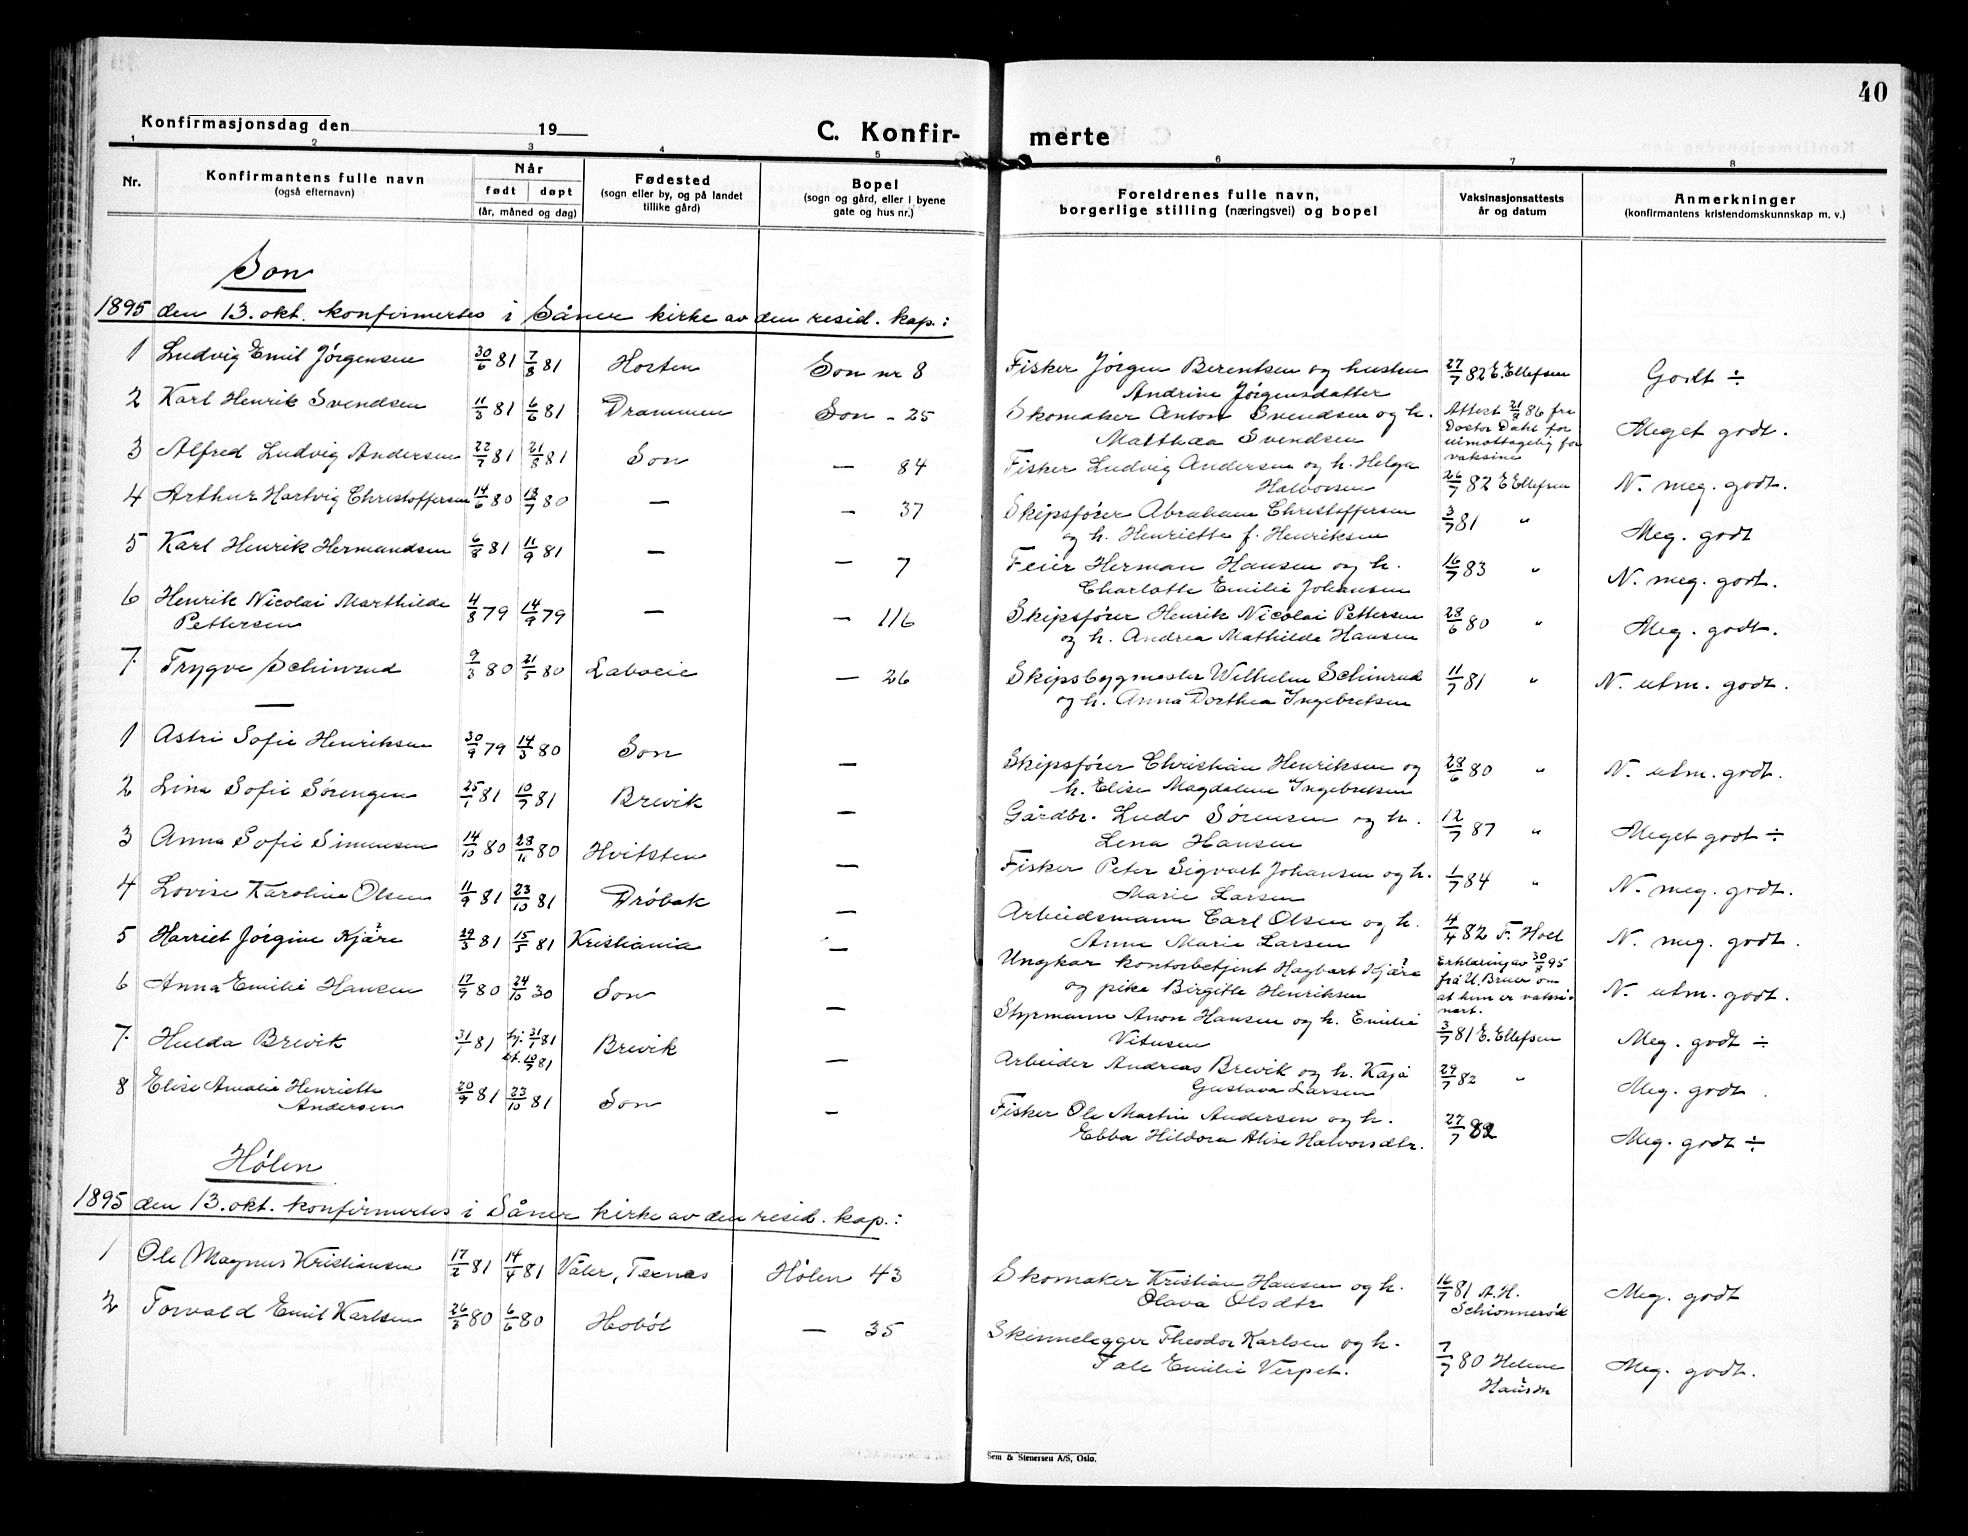 40
Konfirmasjonsdag den 19
C. Konfir-
merte
1 2 3 4 5 6 7 8
Nr.
Konfirmantens fulle navn
(også efternavn)
Når
født døpt
(år, måned og dag)
Fødested
(sogn eller by, og på landet
tillike gård)
Bopel
(sogn og gård, eller i byene
gate og hus nr.)
Foreldrenes fulle navn,
borgerlige stilling (næringsvei) og bopel
Vaksinasjonsattests
år og datum
Anmerkninger
(konfirmantens kristendomskunnskap m. v.)
Son
1895 den 13. okt. konfirmertes i Såner kirke av den resid. kap.:
1 Ludvig Emil Jørgensen 30/6 81 7/8 81 Horten Son nr 8
Fisker Jørgen Berentsen og hustru 27/7 82 E. Ellefsen Godt ÷
Andrine Jørgensdatter
2 Karl Henrik Svendsen 11/3 81 6/6 81 Drammen Son - 25
Skomaker Anton Svendsen og h. Attest 21/8 86 fra Meget godt.
Matthæa Svendsen Doctor Dahl for
uimottagelig for
vaksine
3 Alfred Ludvig Andersen 22/7 81 21/8 81 Son — 84
Fisker Ludvig Andersen og h. Helga 26/7 82 E Ellefsen N. meg. godt.
Halvorsen
4 Arthur Hartvig Christoffersen 14/6 80 18/7 80 — — 37
Skipsfører Abraham Christoffersen 3/7 81 " Meg. godt
og h. Henriette f. Henriksen
5 Karl Henrik Hermandsen 6/8 81 11/9 81 — — 7
Feier Herman Hansen og h. 16/7 83 " N. meg. godt.
Charlotte Emilie Johansen
6 Henrik Nicolai Marthilde 4/8 79 14/9 79 — — 116
Pettersen
Skipsfører Henrik Nicolai Pettersen 28/6 80 " Meg. godt.
og h. Andrea Mathilde Hansen
7. Trygve Schinrud 9/3 80 21/5 80 Laboeie — 26
Skipsbygmester Wilhelm Schinrud 11/7 81 " N. utm. godt.
og h. Anna Dorthea Ingebretsen
1 Astri Sofie Henriksen 30/9 79 14/3 80 Son —
Skipsfører Christian Henriksen og 28/6 80 " N. utm. godt.
h. Elise Magdalene Ingebretsen
2 Lina Sofie Sørengen 25/1 81 10/7 81 Brevik —
Gårdbr. Ludv Sørensen og h. 12/7 87 " Meget godt ÷
Lena Hansen
3 Anna Sofie Simensen 14/10 80 28/11 80 Hvitsten —
Fisker Peter Sigvart Johansen og h. 1/7 84 " N. meg. godt.
Marie Larsen
4 Lovise Karoline Olsen 11/9 81 23/10 81 Drøbak —
Arbeidsmann Carl Olsen og h. 4/4 82 F. Holt N. meg. godt.
Anne Marie Larsen
5 Harriet Jørgine Kjære 29/3 81 15/5 81 Kristiania —
Ungkar kontorbetjent Hagbart Kjære Erklæring av 30/8 95
og pike Birgitte Henriksen frå U. Bruer om N. utm. godt.
at hun er vaksi-
nert.
6 Anna Emilie Hansen 17/9 80 24/10 30 Son —
Styrmann Anon Hansen og h. Emilie 3/7 81 E. Ellefsen Meg. godt ÷
Vitusen
7. Hulda Brevik 31/1 81 hj. 31/1 81 Brevik —
st. 10/7 81
Arbeider Andreas Brevik og h. Kaja 29/7 82 " Meg. godt.
Gustava Larsen
8 Elise Amalie Henriette 20/9 81 23/10 81 Son —
Andersen
Fisker Ole Martin Andersen og h. 27/7 82 Meg. godt ÷
Ebba Hildora Alise Halvorsdtr.
Hølen
1895 den 13. okt. konfirmertes i Såner kirke av den resid. kap.:
1 Ole Magnus Kristiansen 17/2 81 14/4 81 Våler, Texnes Hølen 43
Skomaker Kristian Hansen og h. 16/7 81 A. H. Meg. godt
Olava Olsdtr Schionnerød
2 Torvald Emil Karlsen 26/3 80 6/6 80 Hobøl — 35
Skinnelegger Theodor Karlsen og h. 7/7 80 Helene Meg. godt.
Tale Emilie Verpet. Hansdtr
Sem & Stenersen A/S, Oslo.